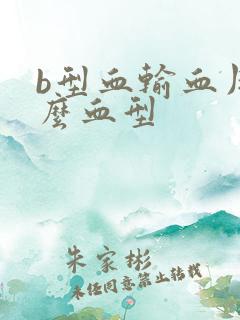 b型血輸血
麼血型
朱家彬
未经同意禁止转载